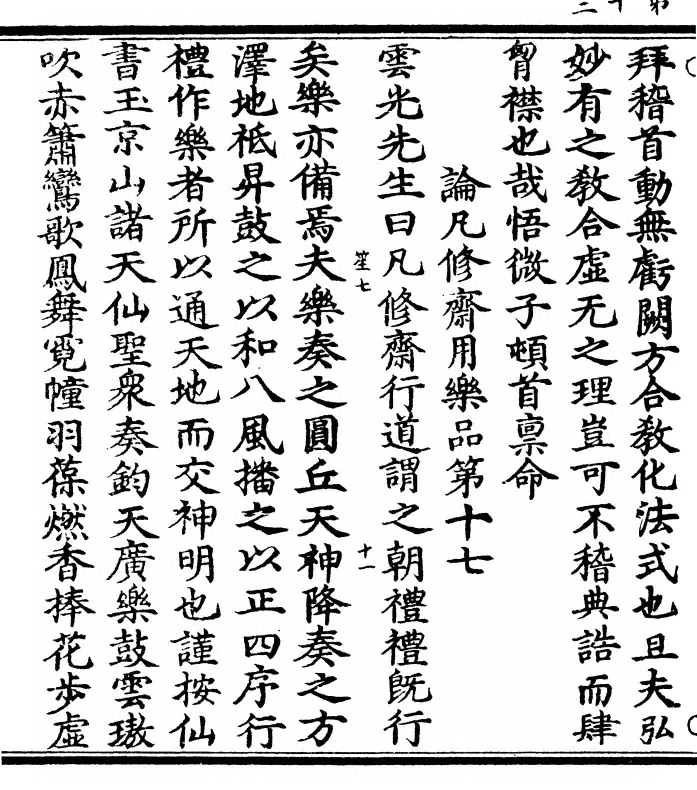 拜稽首動無虧闕方合教化法式也且夫弘
妙有之教合虛无之理豈可不稽典誥而肆
胷襟也哉悟微子頓首禀命
論凡修齋用樂品第十七
雲光先生曰凡修齋行道謂之朝禮禮既行
笙七
十一
矣樂亦備焉夫樂奏之圓丘天神降奏之方
澤地祇昇鼓之以和八風播之以正四序行
禮作樂者所以通天地而交神明也謹按仙
書玉京山諸天仙聖衆奏鈞天廣樂鼓雲璈
吹赤簫鸞歌鳳舞霓幢羽葆燃香捧花步虛